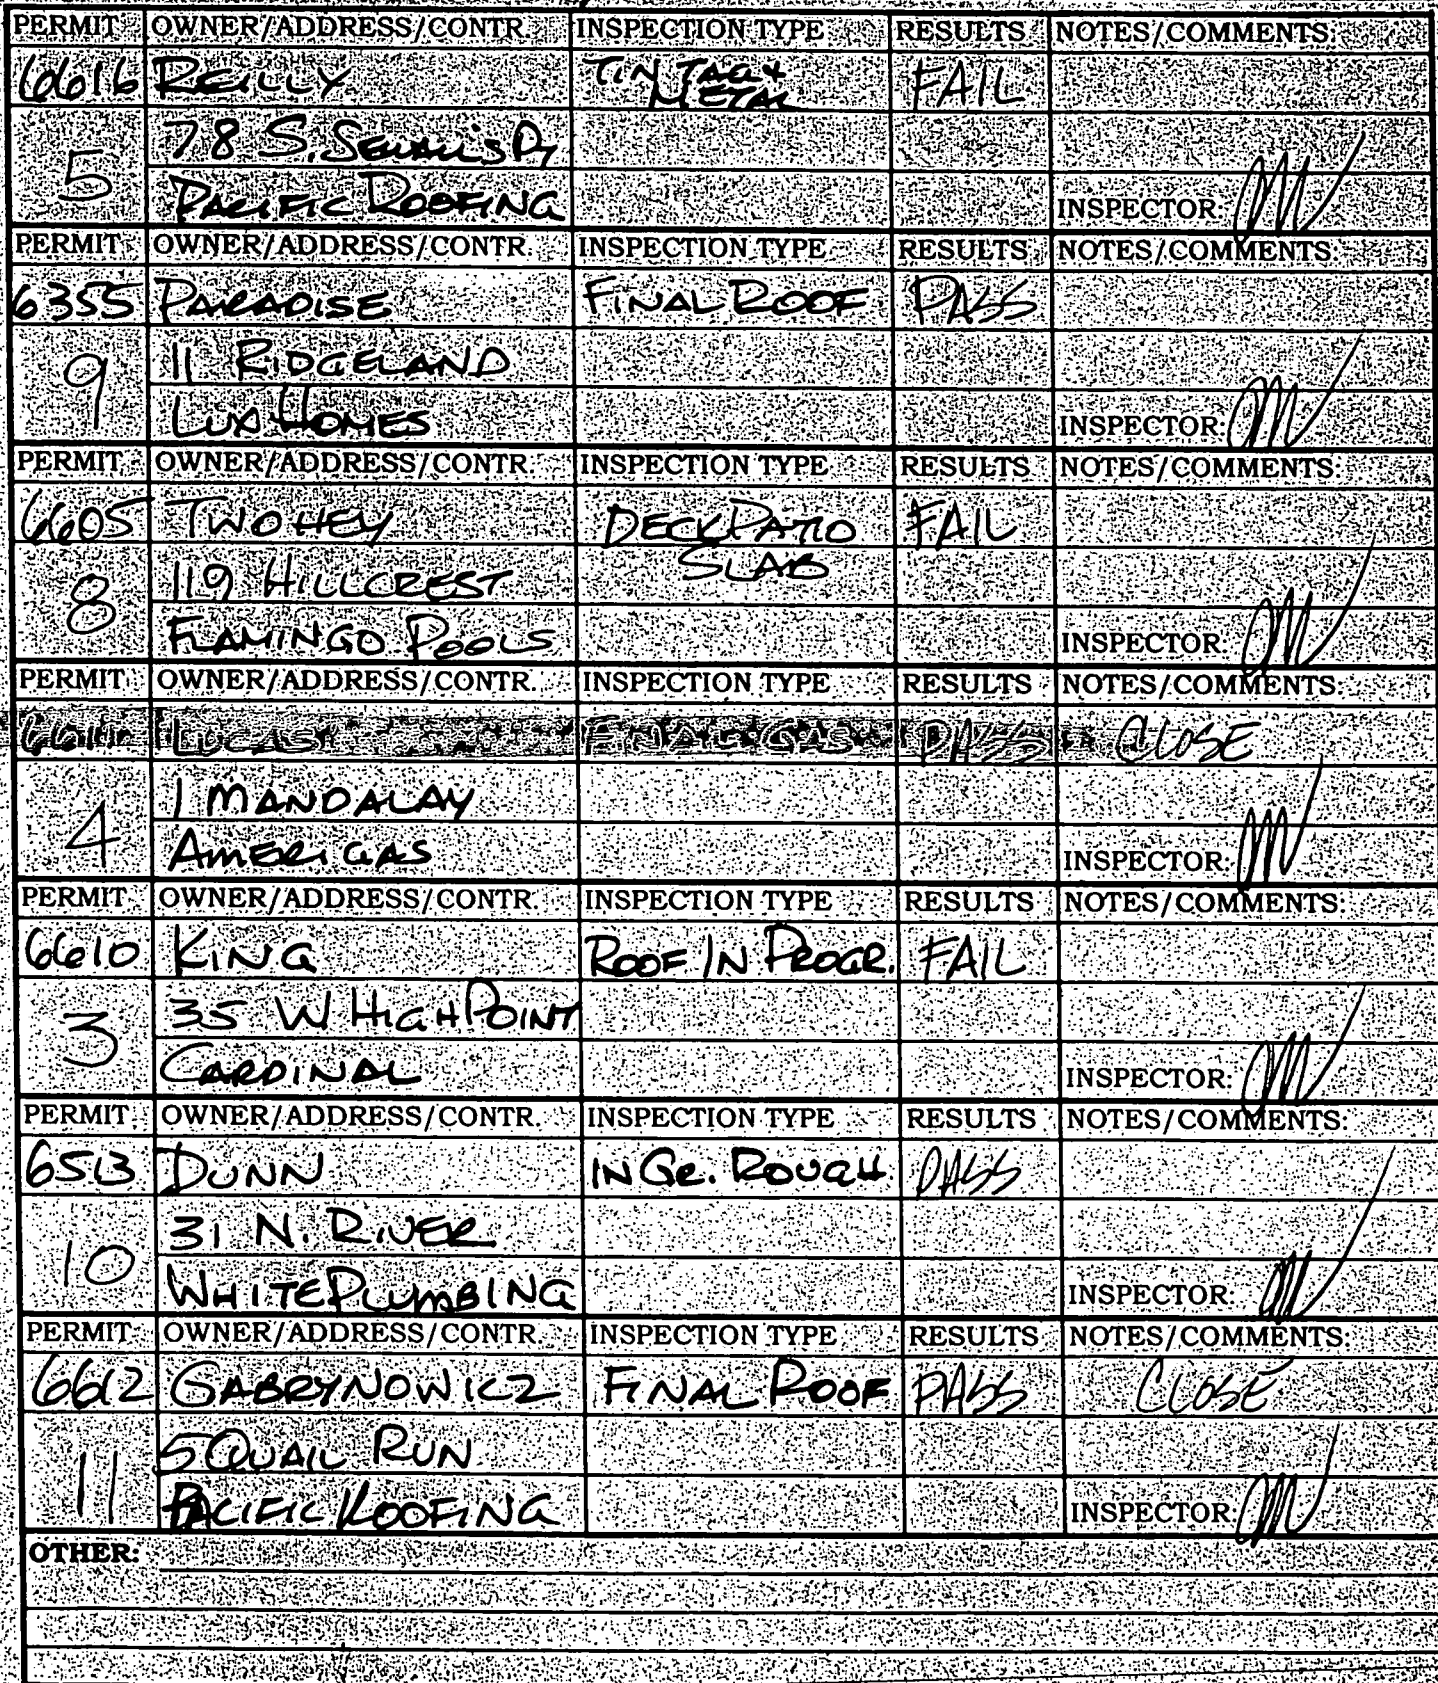 PERMIT OWNER/ADDRESS/CONTR. INSPECTION TYPE RESULTS NOTES/COMMENTS:
6616 REILLY TIN TAG & FAIL
METAL
5 78 S. SEWALL'S PT
PACIFIC ROOFING INSPECTOR:
PERMIT OWNER/ADDRESS/CONTR. INSPECTION TYPE RESULTS NOTES/COMMENTS:
6355 PARADISE FINAL ROOF PASS
9 11 RIDGELAND
LUX HOMES INSPECTOR:
PERMIT OWNER/ADDRESS/CONTR. INSPECTION TYPE RESULTS NOTES/COMMENTS:
6605 TWOHEY DECK PATIO FAIL
SLAB
8 119 HILLCREST
FLAMINGO POOLS INSPECTOR:
PERMIT OWNER/ADDRESS/CONTR. INSPECTION TYPE RESULTS NOTES/COMMENTS:
LUCAS FINAL GAS PASS CLOSE
4 1 MANDALAY
AMERIGAS INSPECTOR:
PERMIT OWNER/ADDRESS/CONTR. INSPECTION TYPE RESULTS NOTES/COMMENTS:
6610 KING ROOF IN PROGR. FAIL
3 35 W HIGH POINT
CARDINAL INSPECTOR:
PERMIT OWNER/ADDRESS/CONTR. INSPECTION TYPE RESULTS NOTES/COMMENTS:
6513 DUNN IN GR. ROUGH PASS
10 31 N. RIVER
WHITE PLUMBING INSPECTOR:
PERMIT OWNER/ADDRESS/CONTR. INSPECTION TYPE RESULTS NOTES/COMMENTS:
6612 GABRYNOWICZ FINAL ROOF PASS CLOSE
11 5 QUAIL RUN
PACIFIC ROOFING INSPECTOR:
OTHER: